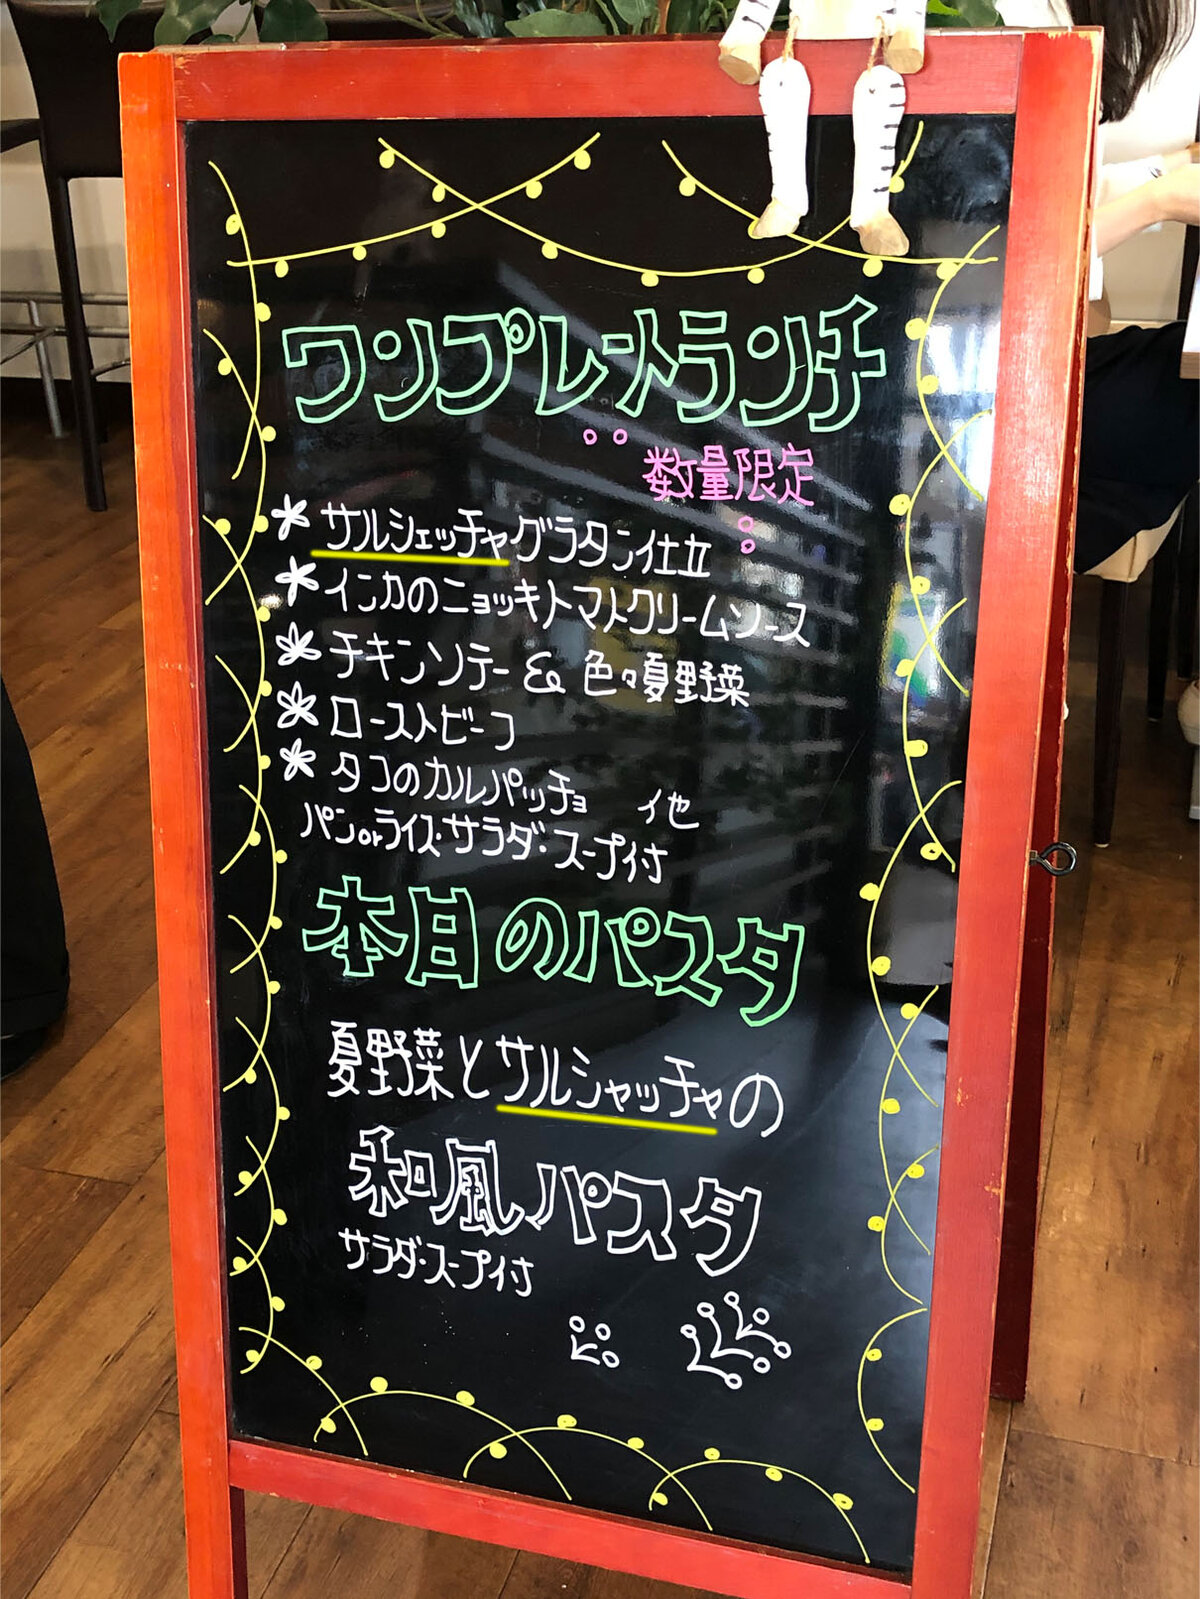 ワンプレートランチ
数量限定
* サルシェッチャグラタン仕立
* インカのニョッキトマトクリームソース
* チキンソテー & 色々夏野菜
* ローストビーフ
* タコのカルパッチョ 他
パンorライス・サラダ・スープ付
本日のパスタ
夏野菜とサルシャッチャの
和風パスタ
サラダ・スープ付